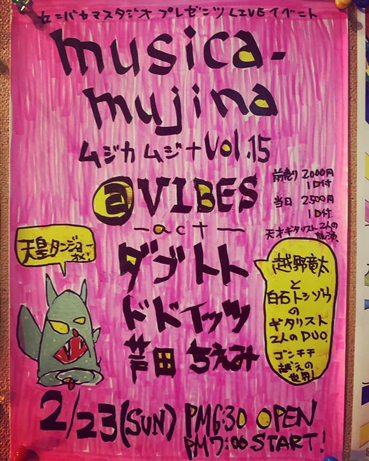 センバカマスタジオ プレゼンツ LIVE イベント
musica-
mujina
ムジカ ムジナ Vol.15
前売り 2000円
1D付
当日 2500円
1D付
@VIBES
-act-
天才ギタリスト2人の
ダブルトト
ドドイッツ
芦田 ちえみ
天皇タンジョー
越野竜太
と
白石トシゾウ
の
ギタリスト
2人のDUO。
ゴンチチ
越えの
世界!
2/23(SUN) PM6:30 OPEN
PM7:00 START!